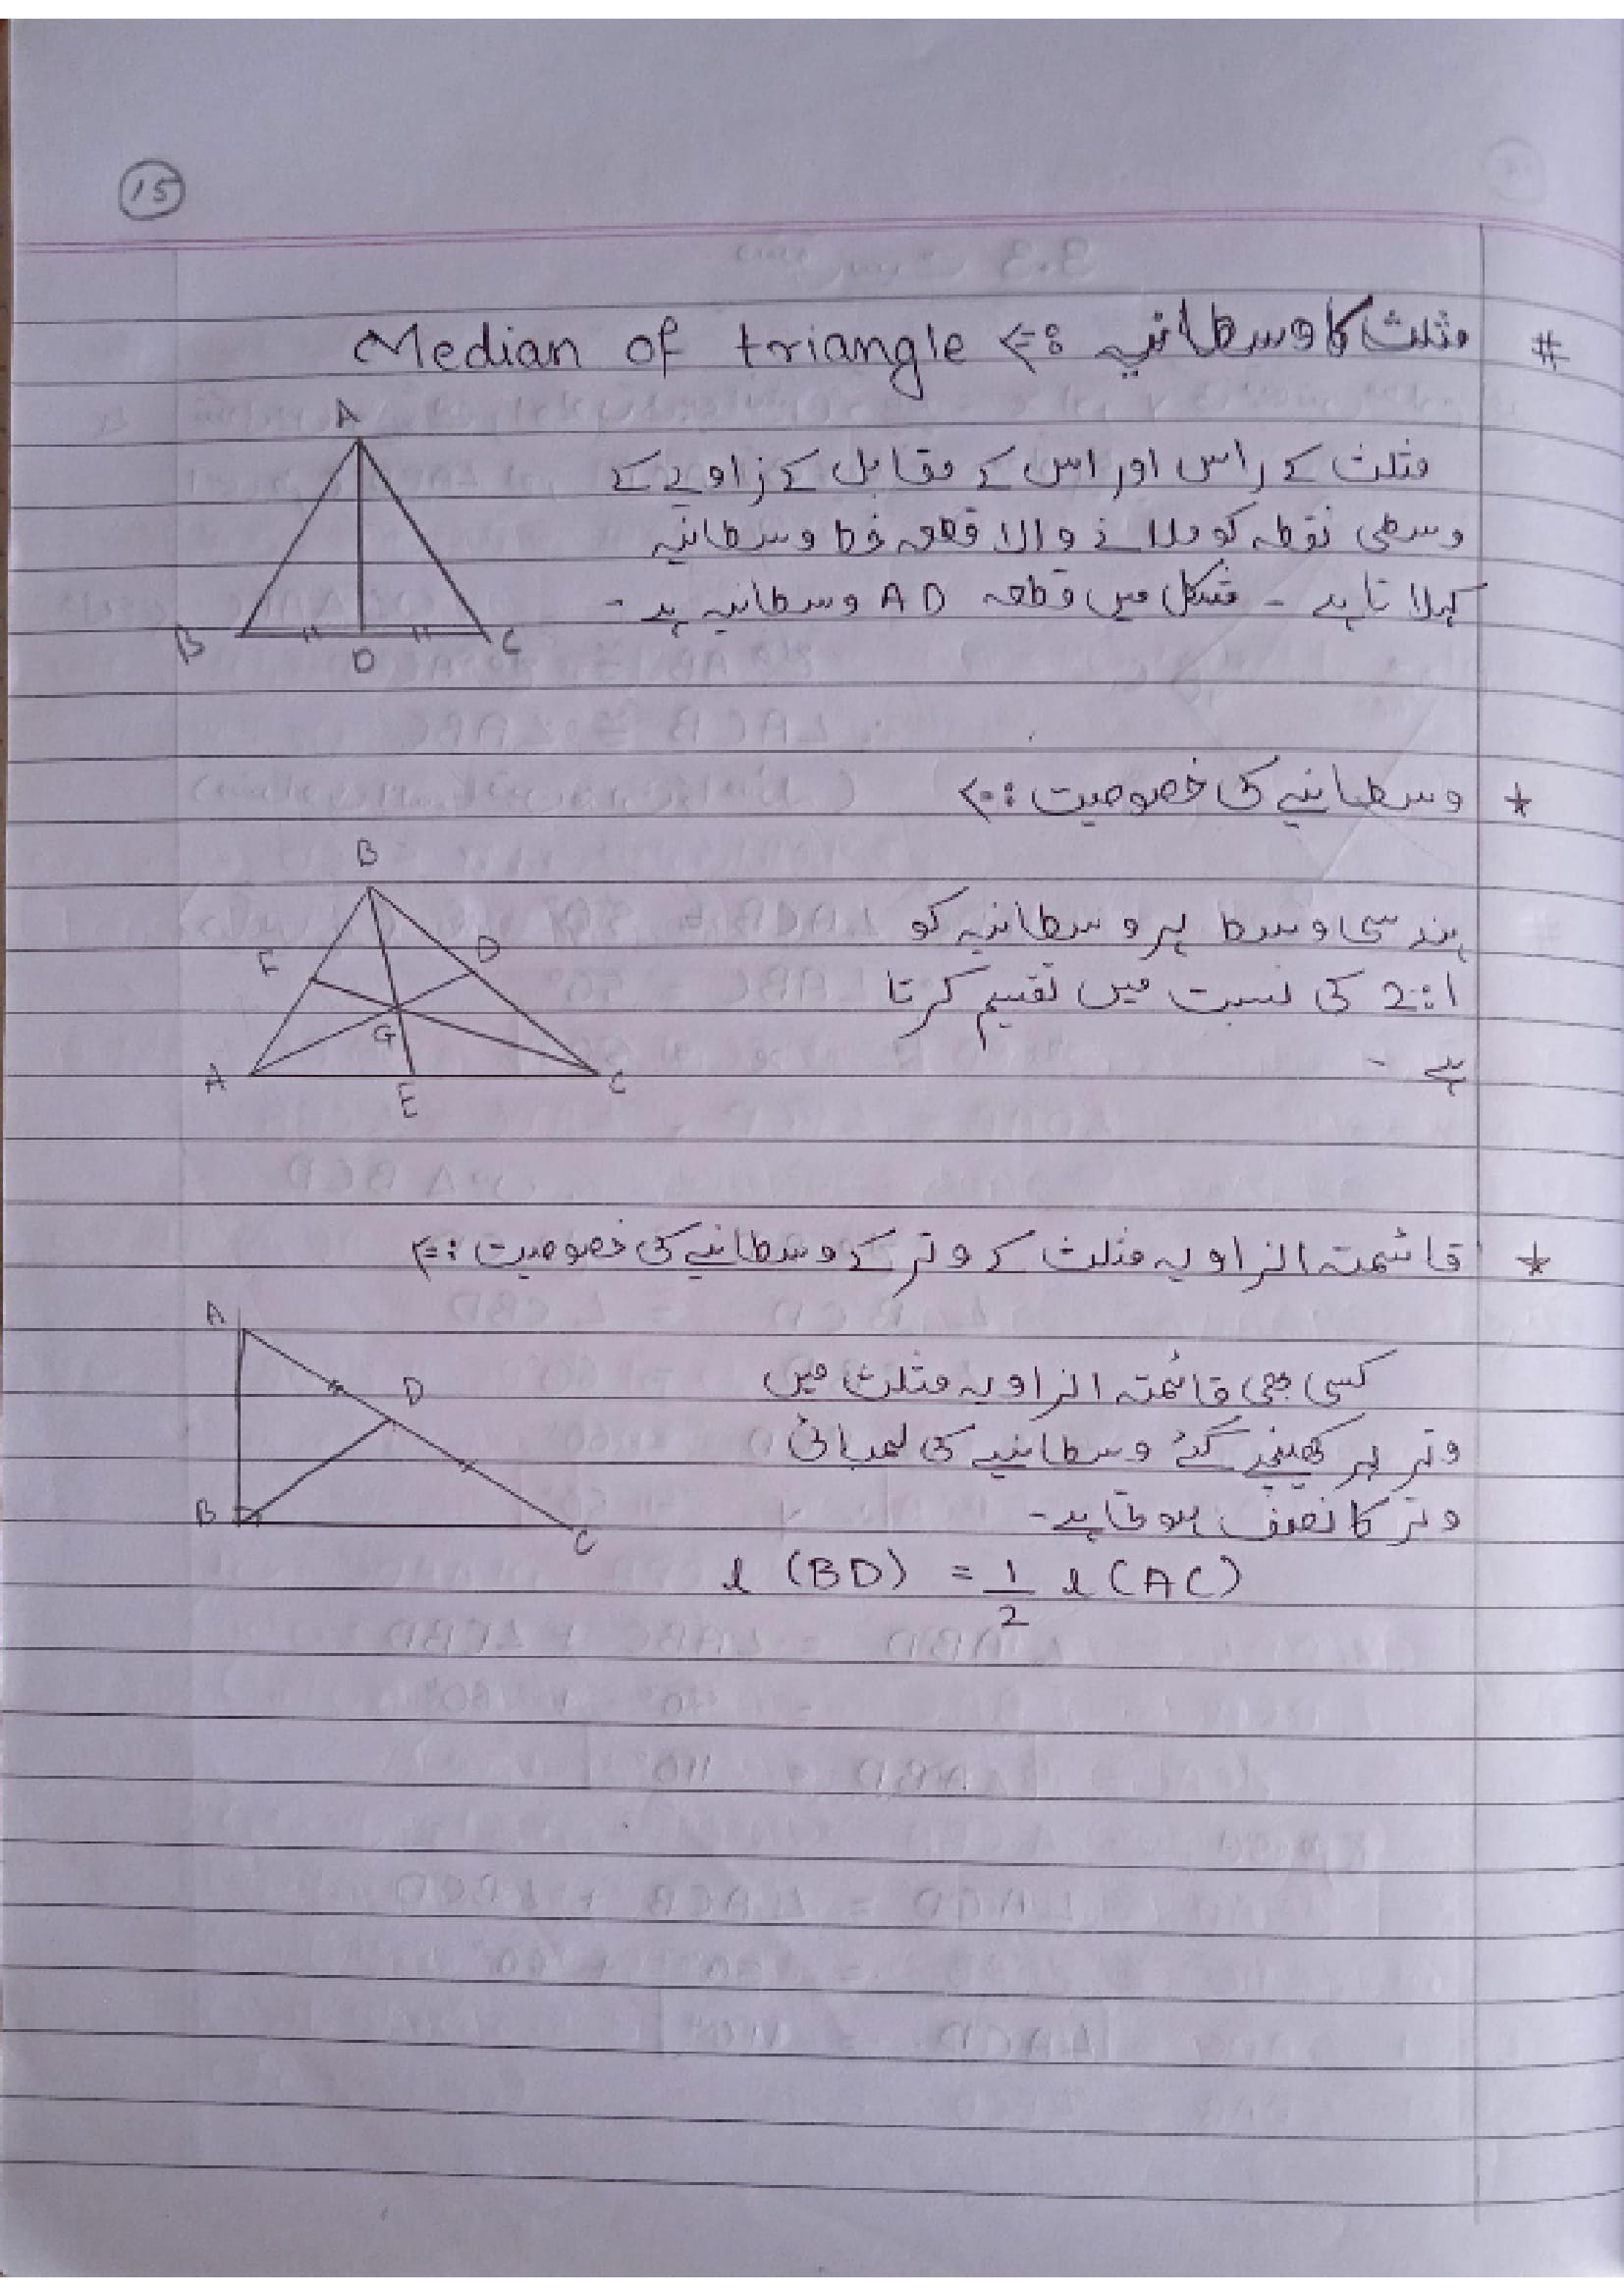 15
# مثلث کا وسطانیہ :⇐ Median of triangle
مثلث کے راس اور اس کے مقابل کے زاویے کے
وسطی نقطہ کو ملانے والا قطعہ خط وسطانیہ
کہلاتا ہے - شکل میں قطعہ AD وسطانیہ ہے -
A
B
D
C
* وسطانیے کی خصوصیت :⇐
ہندسی وسط ہر وسطانیہ کو
2:1 کی نسبت میں تقسیم کرتا
ہے -
B
F
D
G
A
E
C
* قائمتہ الزاویہ مثلث کے وتر کے وسطانیے کی خصوصیت :⇐
کسی بھی قائمتہ الزاویہ مثلث میں
وتر پر کھینچے گئے وسطانیے کی لمبائی
وتر کا نصف ہوتا ہے -
l (BD) = 1/2 l (AC)
A
D
B
C